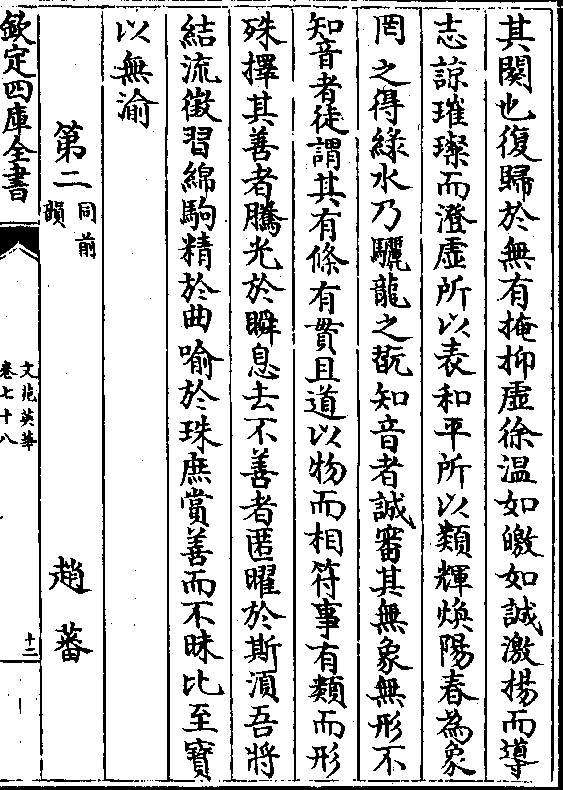 其闋也復歸於無有掩抑虛徐温如皦如誠激揚而導
志諒璀璨而澄虛所以表和平所以類輝煥陽春為象
罔之得緑水乃驪龍之翫知音者誠審其無象無形不
知音者徒謂其有條有貫且道以物而相符事有類而形
殊擇其善者騰光於瞬息去不善者匿曜於斯須吾將
結流徵習綿駒精於曲喻於珠庶賞善而不昧比至寳
以無渝
第二同前韻 趙蕃
欽定四庫全書
文苑英華
卷七十八
十二